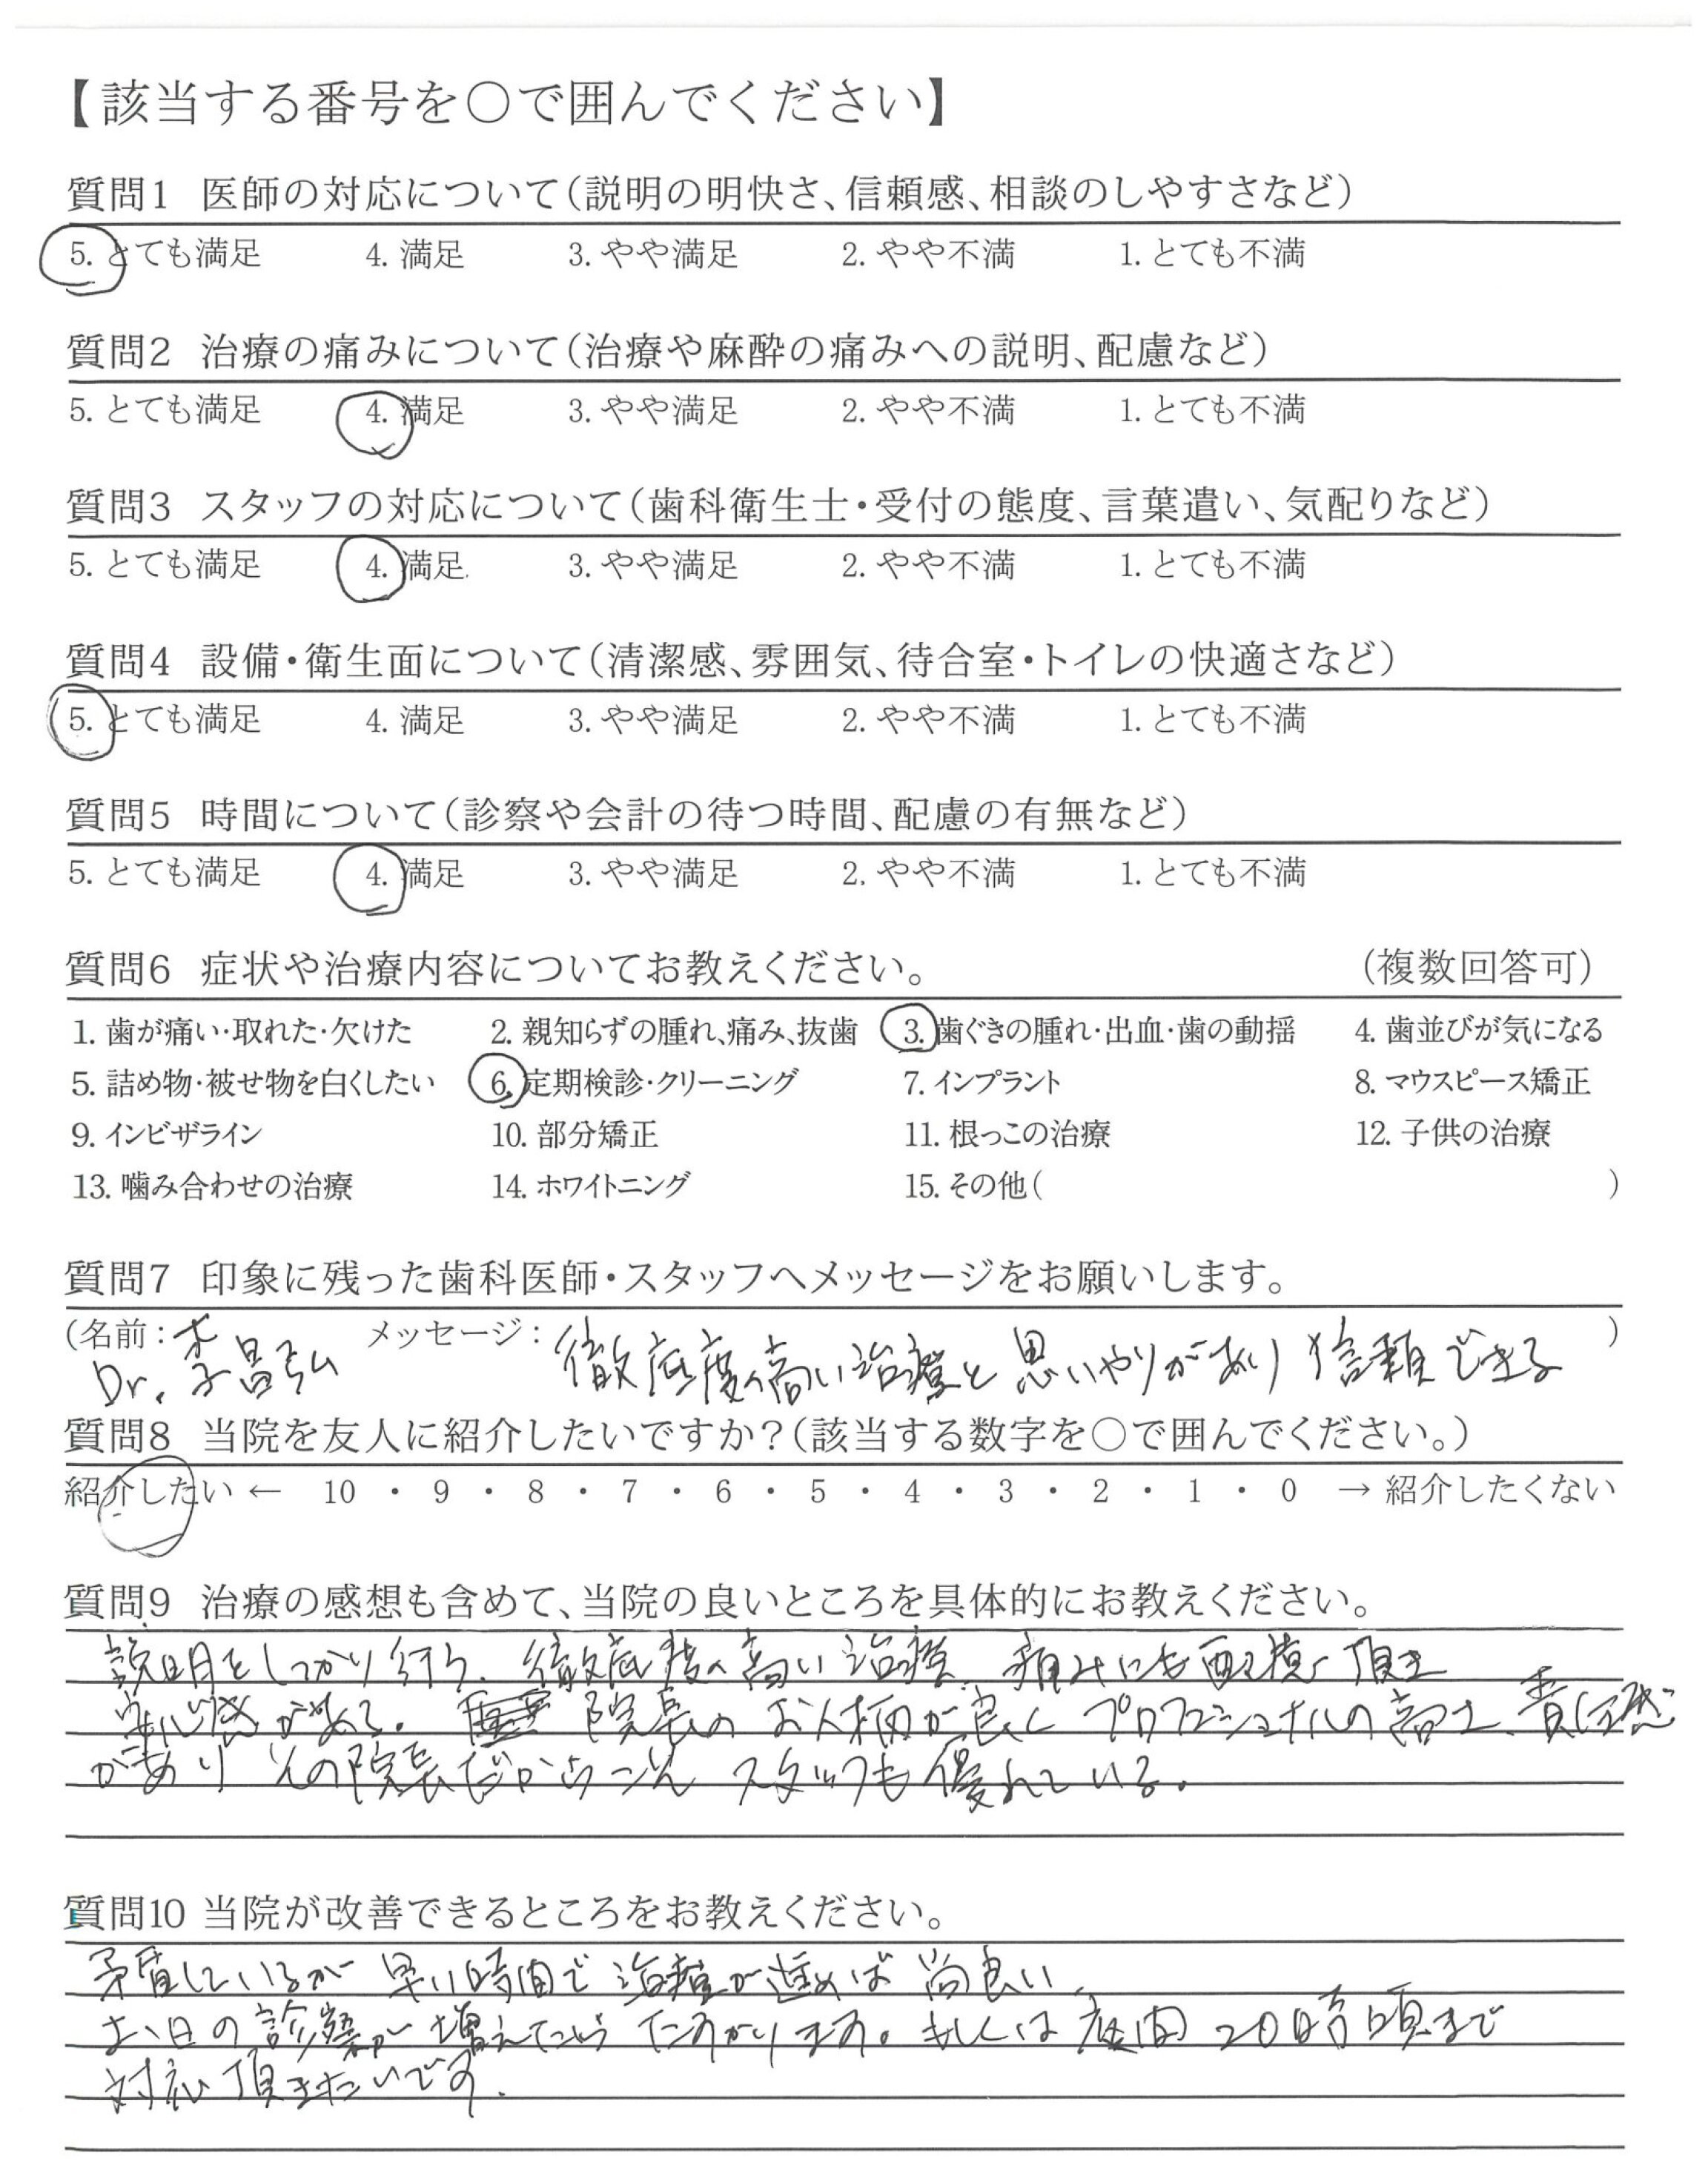 【該当する番号を○で囲んでください】
質問1 医師の対応について(説明の明快さ、信頼感、相談のしやすさなど)
5. とても満足 4. 満足 3. やや満足 2. やや不満 1. とても不満
質問2 治療の痛みについて(治療や麻酔の痛みへの説明、配慮など)
5. とても満足 4. 満足 3. やや満足 2. やや不満 1. とても不満
質問3 スタッフの対応について(歯科衛生士・受付の態度、言葉遣い、気配りなど)
5. とても満足 4. 満足 3. やや満足 2. やや不満 1. とても不満
質問4 設備・衛生面について(清潔感、雰囲気、待合室・トイレの快適さなど)
5. とても満足 4. 満足 3. やや満足 2. やや不満 1. とても不満
質問5 時間について(診察や会計の待つ時間、配慮の有無など)
5. とても満足 4. 満足 3. やや満足 2. やや不満 1. とても不満
質問6 症状や治療内容についてお教えください。 (複数回答可)
1. 歯が痛い・取れた・欠けた 2. 親知らずの腫れ、痛み、抜歯 3. 歯ぐきの腫れ・出血・歯の動揺 4. 歯並びが気になる
5. 詰め物・被せ物を白くしたい 6. 定期検診・クリーニング 7. インプラント 8. マウスピース矯正
9. インビザライン 10. 部分矯正 11. 根っこの治療 12. 子供の治療
13. 噛み合わせの治療 14. ホワイトニング 15. その他( )
質問7 印象に残った歯科医師・スタッフへメッセージをお願いします。
(名前: Dr. 李昌弘 メッセージ: 徹底度の高い治療と思いやりがあり信頼できる )
質問8 当院を友人に紹介したいですか?(該当する数字を○で囲んでください。)
紹介したい ← 10 ・ 9 ・ 8 ・ 7 ・ 6 ・ 5 ・ 4 ・ 3 ・ 2 ・ 1 ・ 0 → 紹介したくない
質問9 治療の感想も含めて、当院の良いところを具体的にお教えください。
説明をしっかり行う、徹底度の高い治療、痛みにも配慮頂き
安心感がある。院長のお人柄が良くプロフェショナルの高さ、責任感
があり その院長だからこそ スタッフも優れている。
質問10 当院が改善できるところをお教えください。
矛盾しているが 早い時間で治療が進めば尚良い
土、日の診察が増えたら たすかります。もしくは夜間20時頃まで
対応頂きたいです。